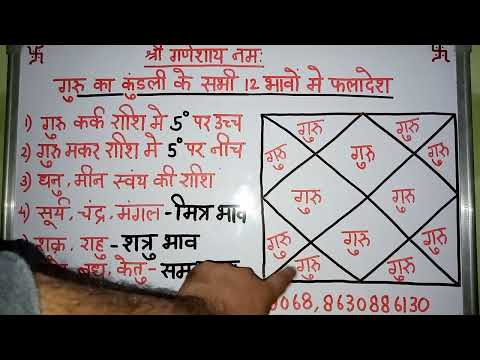 श्री गणेशाय नमः
गुरु का कुंडली के सभी 12 भावों मे फलादेश
1) गुरु कर्क राशि मे 5° पर उच्च
2) गुरु मकर राशि मे 5° पर नीच
3) धनु, मीन स्वंय की राशि
4) सूर्य, चंद्र, मंगल - मित्र भाव
शुक्र, राहु - शत्रु भाव
बुध, केतु - सम
गुरु गुरु
गुरु गुरु गुरु
गुरु गुरु
गुरु गुरु गुरु
गुरु गुरु
8630886130